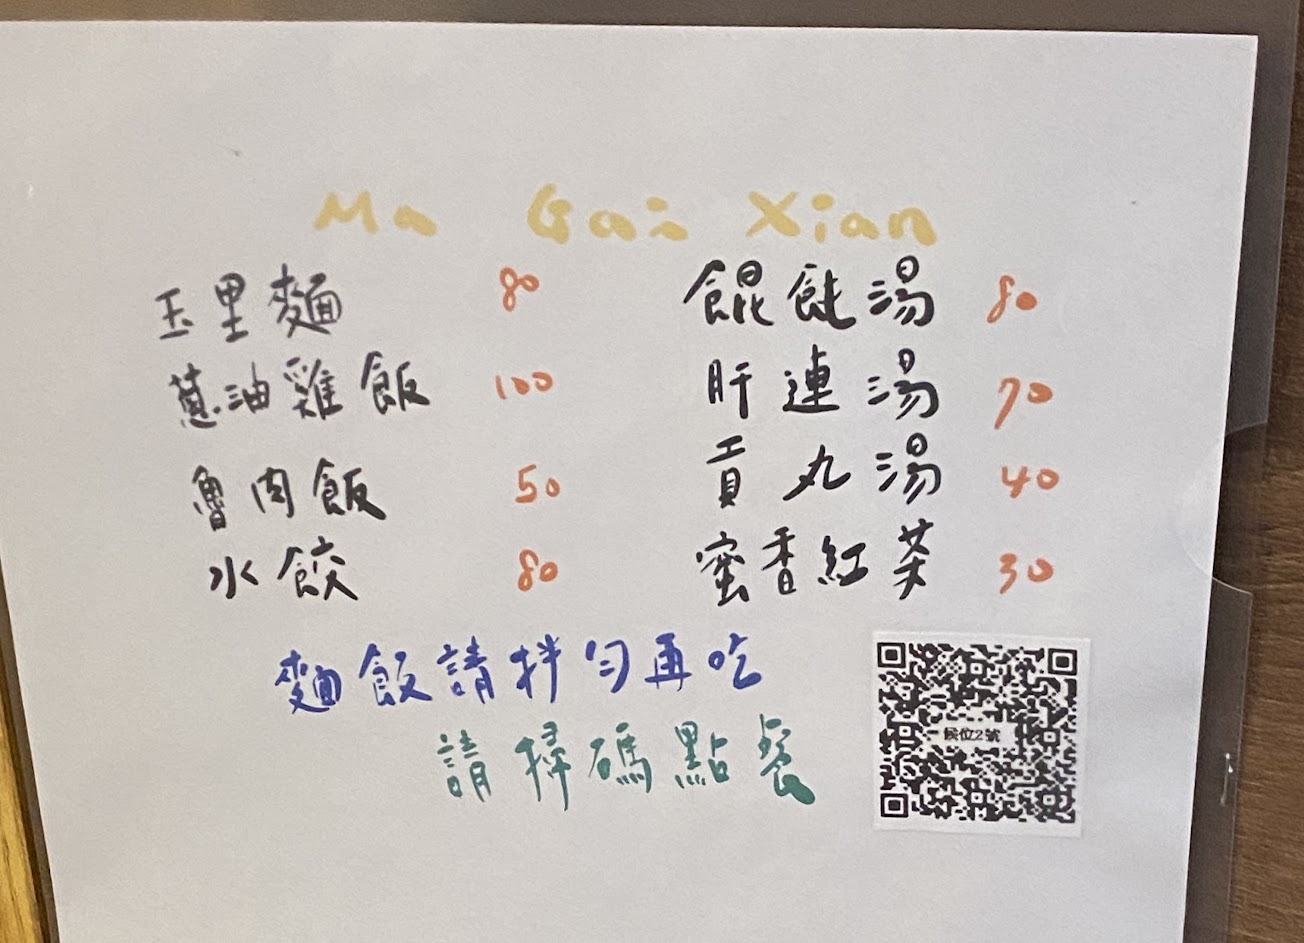 Ma Gai Xian
玉里麵 80 餛飩湯 80
蔥油雞飯 100 肝連湯 70
魯肉飯 50 貢丸湯 40
水餃 80 蜜香紅茶 30
麵飯請拌勻再吃
請掃碼點餐
候位2號